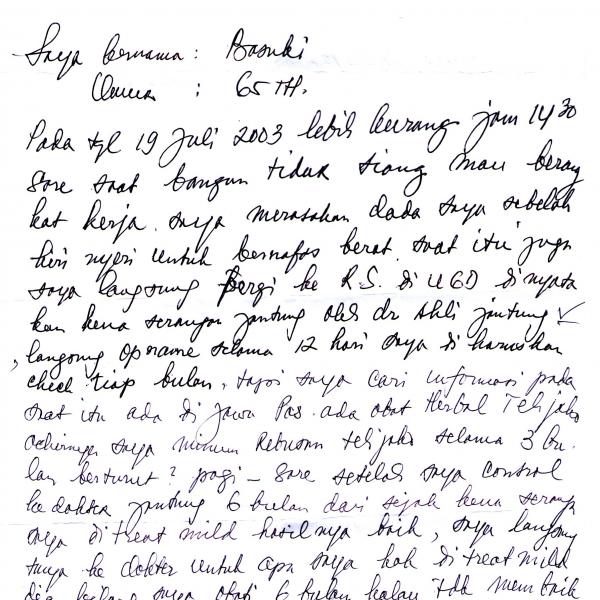 Saya bernama : Basuki
Umur : 65 TH.
Pada tgl 19 Juli 2003 lebih kurang jam 14 30
Sore saat bangun tidur siang mau berang
kat kerja. saya merasakan dada saya sebelah
kiri nyeri untuk bernafas berat. saat itu juga
saya langsung pergi ke R.S. di UGD dinyata
kan kena serangan jantung oleh dr Ahli jantung
langsung Opname selama 12 hari saya di haruskan
check tiap bulan, tapi saya cari informasi pada
saat itu ada di Jawa Pos. ada obat Herbal Teh jako
achirnya saya minum Rebusan teh jako selama 3 bu.
lan berturut2 pagi - sore setelah saya control
ke dokter jantung 6 bulan dari sejak kena serang
saya di treat mild hasilnya baik, saya langsung
tanya ke dokter untuk apa saya kok di treat mild
saya obati 6 bulan kalau tdk membaik